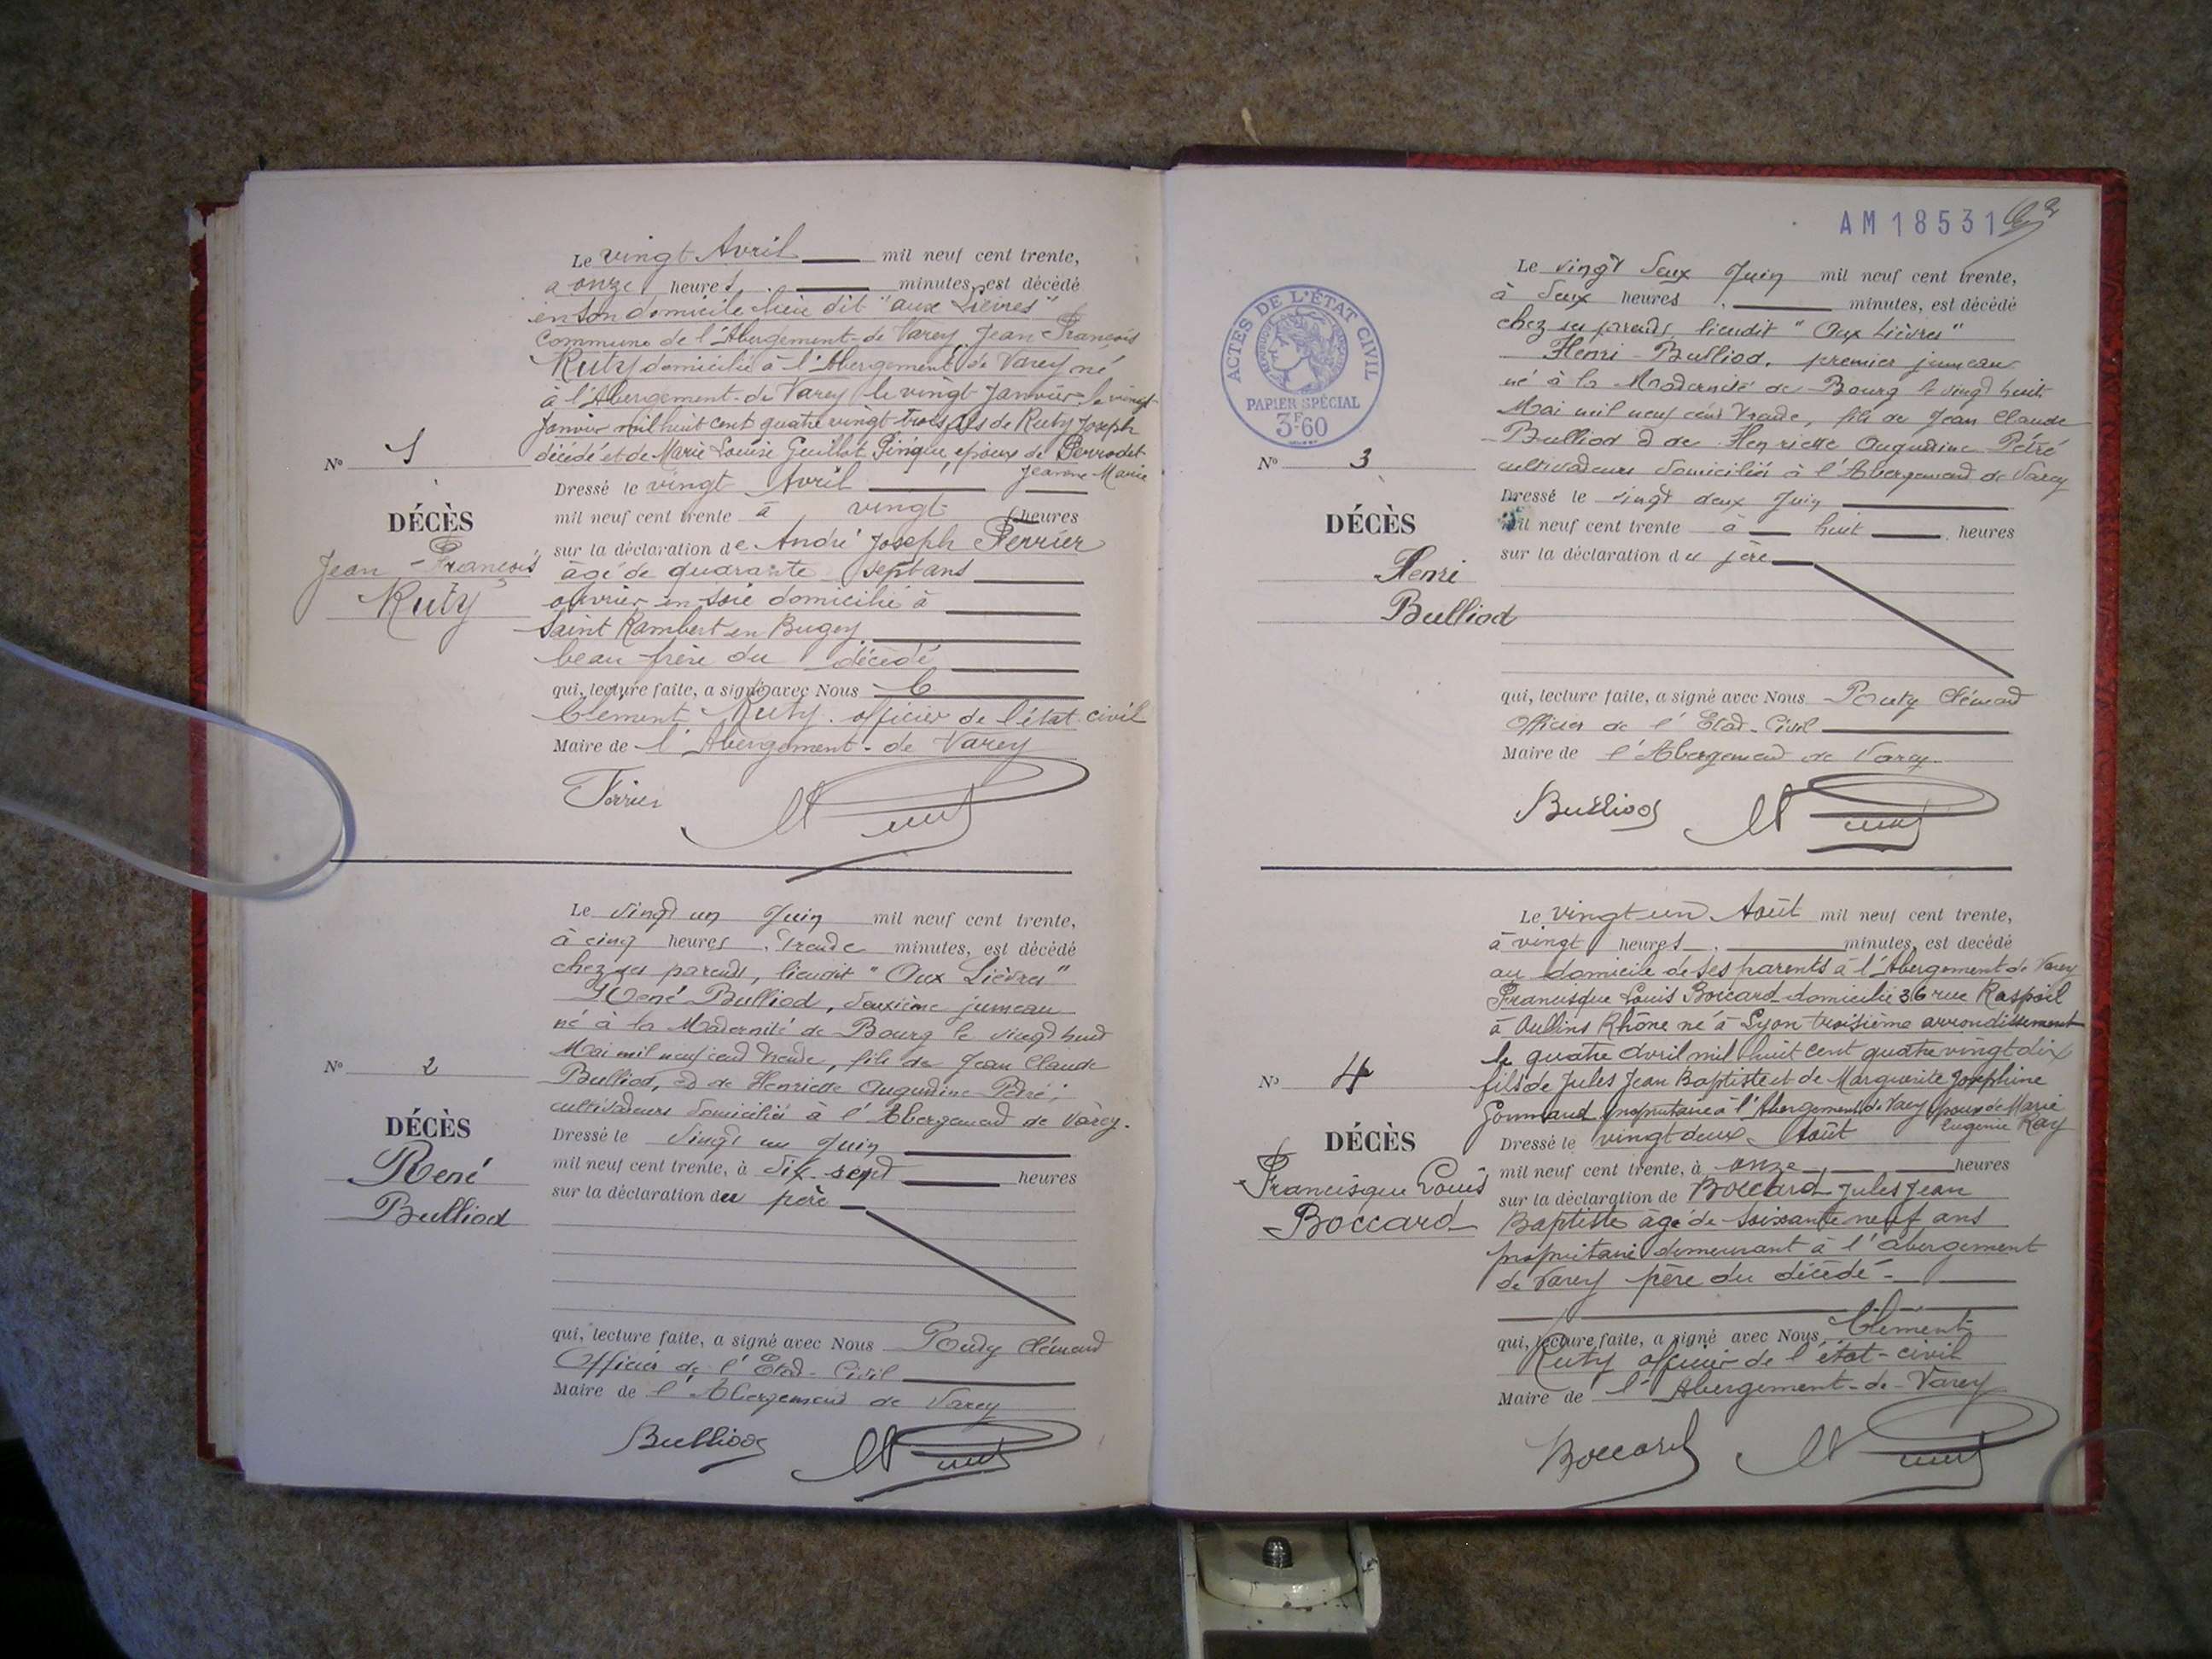 Le vingt Avril mil neuf cent trente,
a onze heures, minutes, est décédé
en son domicile lieu dit "aux Lièvres"
Commune de l'Abergement-de Varey, Jean François
Ruty domicilié à l'Abergement de Varey né
à l'Abergement-de Varey le vingt Janvier le vingt
Janvier mil huit cent quatre vingt trois fils de Ruty Joseph
décédé et de Marie Louise Guillot Pingue, époux de Perrodet
Jeanne Marie
Nº 1
DÉCÈS
Jean-François
Ruty
Dressé le vingt Avril
mil neuf cent trente à vingt heures
sur la déclaration de André Joseph Ferrier
âgé de quarante sept ans
ouvrier en soie domicilié à
Saint Rambert en Bugey
beau frère du décédé
qui, lecture faite, a signé avec Nous C
Clement Ruty. officier de l'état civil
Maire de l'Abergement-de Varey
Ferrier
Le vingt un Juin mil neuf cent trente,
à cinq heures, trente minutes, est décédé
chez ses parents, lieudit "Aux Lièvres"
René Bulliod, deuxième jumeau
né à la Maternité de Bourg le vingt huit
Mai mil neuf cent trente, fils de Jean Claude
Bulliod, et de Henriette Augustine Pétré,
cultivateurs domiciliés à l'Abergement de Varey.
Nº 2
DÉCÈS
René
Bulliod
Dressé le vingt un Juin
mil neuf cent trente, à dix-sept heures
sur la déclaration du père
qui, lecture faite, a signé avec Nous Ruty Clément
Officier de l'Etat-Civil
Maire de l'Abergement de Varey
Bulliod
AM 18531
ACTES DE L'ÉTAT CIVIL
PAPIER SPÉCIAL
3F60
Le vingt deux Juin mil neuf cent trente,
à deux heures, minutes, est décédé
chez ses parents, lieudit "Aux Lièvres"
Henri-Bulliod, premier jumeau
né à la Maternité de Bourg le vingt huit
Mai mil neuf cent trente, fils de Jean Claude
Bulliod et de Henriette Augustine Pétré
cultivateurs domiciliés à l'Abergement de Varey
Nº 3
DÉCÈS
Henri
Bulliod
Dressé le vingt deux Juin
mil neuf cent trente à huit heures
sur la déclaration du père
qui, lecture faite, a signé avec Nous Ruty Clément
Officier de l'Etat-Civil
Maire de l'Abergement de Varey
Bulliod
Le vingt un Août mil neuf cent trente,
à vingt heures, minutes, est decédé
au domicile de ses parents à l'Abergement de Varey
Francisque Louis Boccard domicilié 36 rue Raspail
à Oullins Rhône né à Lyon troisième arrondissement
le quatre Avril mil huit cent quatre vingt dix
fils de Jules Jean Baptiste et de Marguerite Joséphine
Gounard propriétaire à l'Abergement de Varey époux de Marie
Eugénie Ray
Nº 4
DÉCÈS
Francisque Louis
Boccard
Dressé le vingt deux Août
mil neuf cent trente, à onze heures
sur la déclaration de Boccard Jules Jean
Baptiste âgé de soixante neuf ans
propriétaire demeurant à l'abergement
de Varey père du décédé
qui, lecture faite, a signé avec Nous, Clément
Ruty officier de l'état-civil
Maire de l'Abergement-de-Varey
Boccard